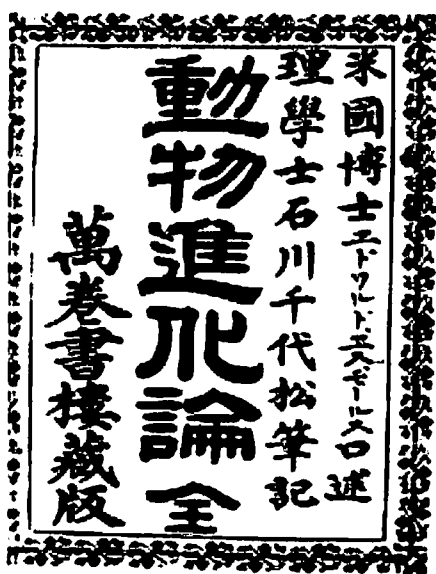 米國博士エドワルド、エス、モールス口述
理學士石川千代松筆記
動物進化論全
萬卷書樓藏版